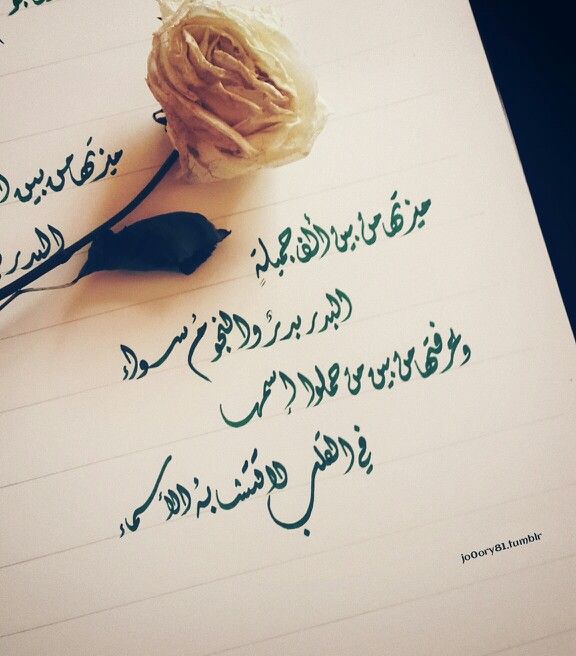 ميزتها من بين ا
البدر
ميزتها من بين ألف جميلةٍ
البدر بدرٌ والنجومُ سواء
وعرفتها من بين من حملوا إسمها
في القلب لا تتشابهُ الأسماء
jo0ory81.tumblr